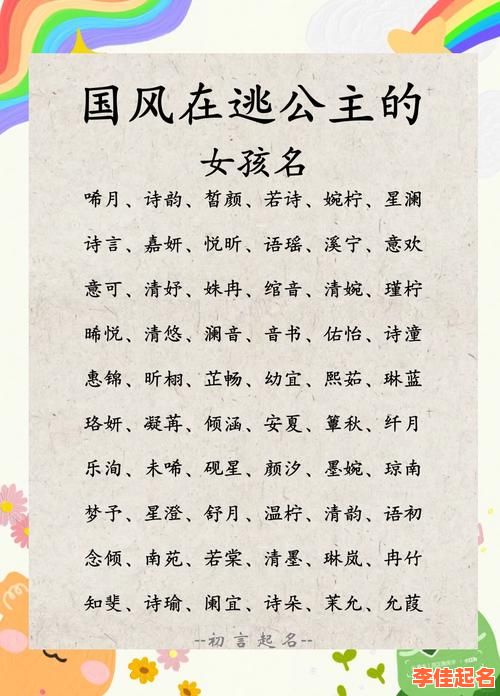 国风在逃公主的
女孩名
唏月、诗韵、皙颜、若诗、婉柠、星澜
诗言、嘉妍、悦昕、语瑶、溪宁、意欢
意可、清妤、姝冉、绾音、清婉、瑾柠
晞悦、清悠、澜音、音书、佑怡、诗潼
惠锦、昕栩、芷畅、幼宜、熙茹、琳蓝
珞妍、凝苒、倾涵、安夏、簟秋、纤月
乐洵、未唏、砚星、颜汐、墨婉、琼南
梦予、星澄、舒月、温柠、清韵、语初
念倾、南苑、若棠、清墨、琳岚、冉竹
知斐、诗瑜、阑宜、诗朵、茉允、允葭
--初言起名--
李佳起名